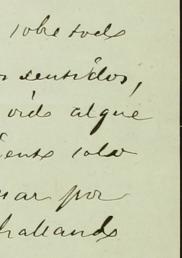 sobre todo
os sentidos,
oido al que
iente solo
uar por
hallando